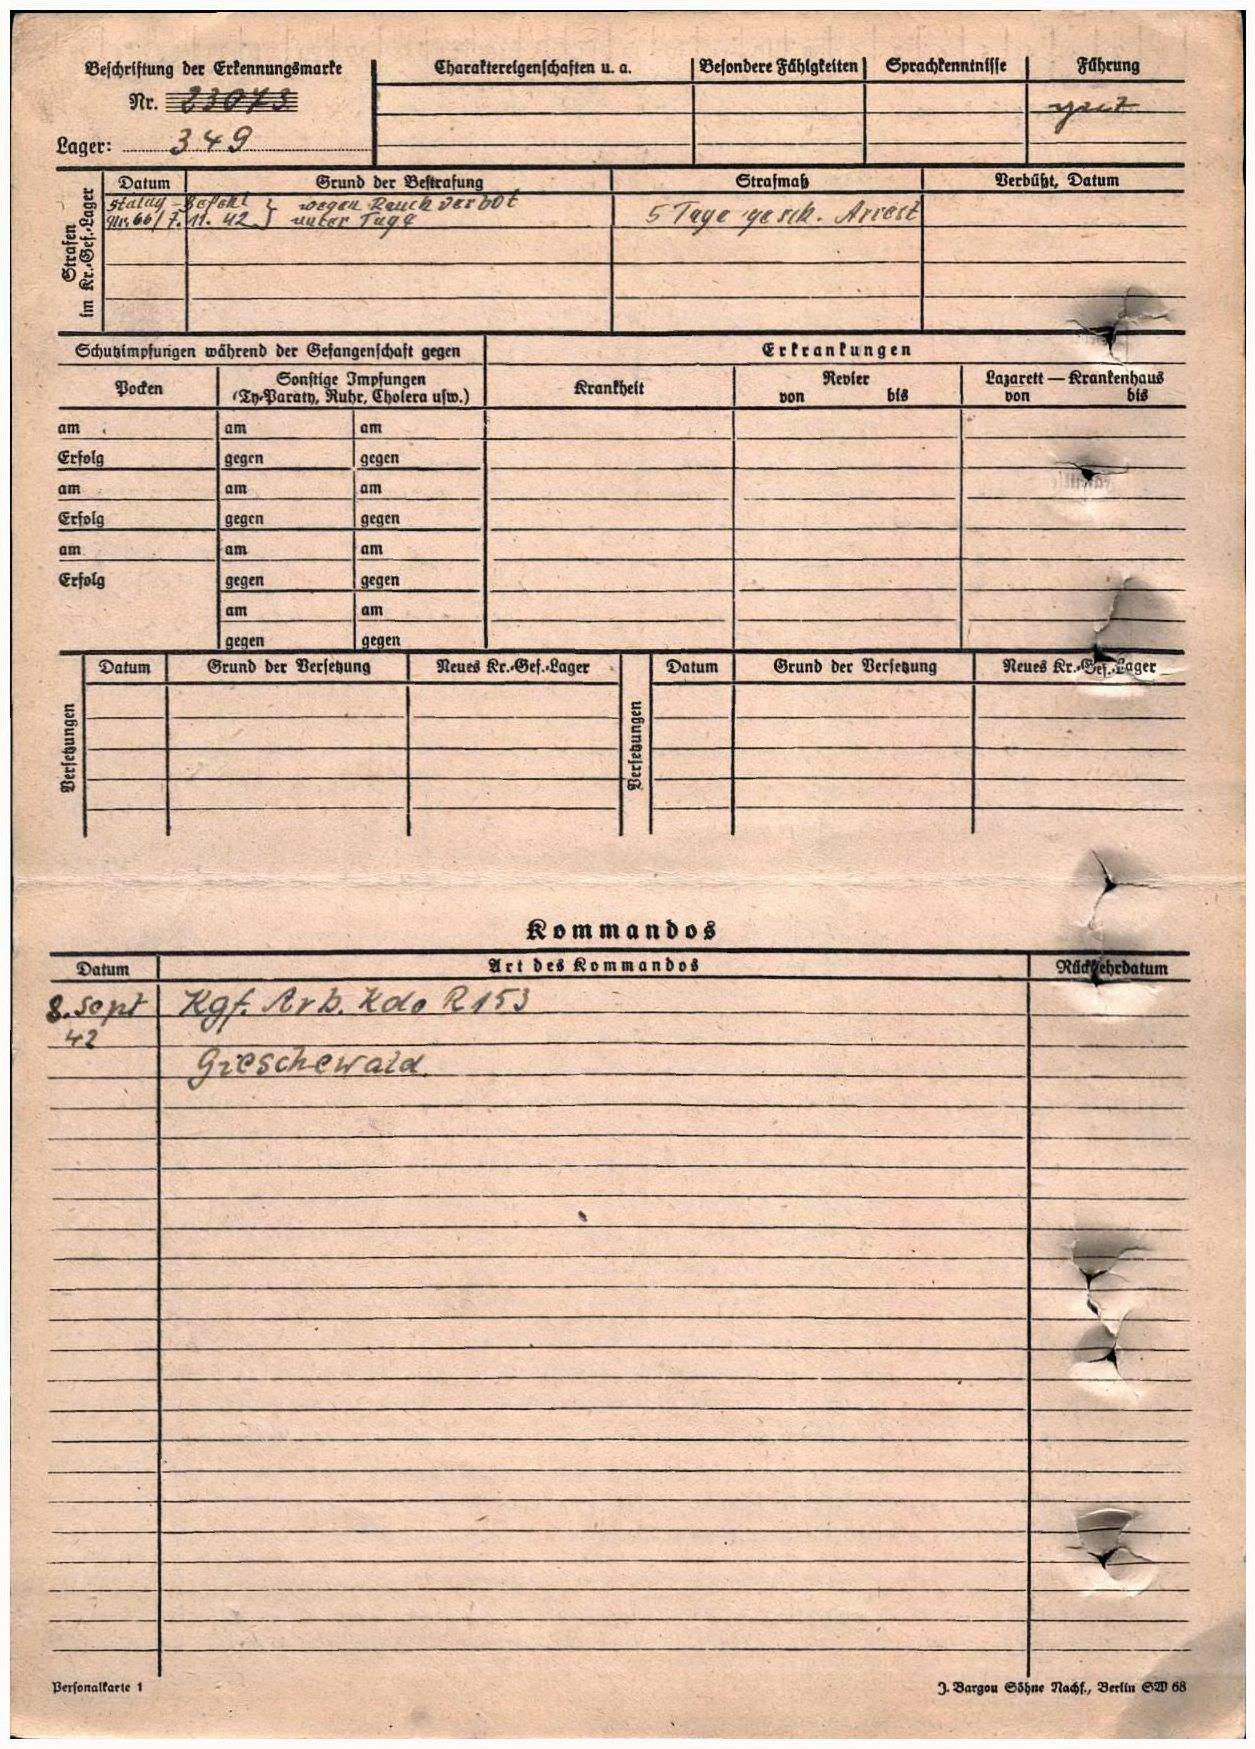 Beschriftung der Erkennungsmarke
Nr. 23073
Lager: 349
Charaktereigenschaften u. a.
Besondere Fähigkeiten
Sprachkenntnisse
Führung
gut
Strafen
im Kr.-Gef.-Lager
Datum
Grund der Bestrafung
Strafmaß
Verbüßt, Datum
Stalag - Befehl } wegen Rauchverbot
Nr. 66/7. 11. 42 } unter Tage
5 Tage gesch. Arrest
Schutzimpfungen während der Gefangenschaft gegen
Erkrankungen
Pocken
Sonstige Impfungen
(Ty-Paraty, Ruhr, Cholera usw.)
Krankheit
Revier
von bis
Lazarett — Krankenhaus
von bis
am am am
Erfolg gegen gegen
am am am
Erfolg gegen gegen
am am am
Erfolg gegen gegen
am am
gegen gegen
Versetzungen
Datum
Grund der Versetzung
Neues Kr.-Gef.-Lager
Versetzungen
Datum
Grund der Versetzung
Neues Kr.-Gef.-Lager
Kommandos
Datum
Art des Kommandos
Rückkehrdatum
8. Sept Kgf. Arb. Kdo R 153
42
Gieschewald
Personalkarte 1
J. Bargou Söhne Nachf., Berlin SW 68